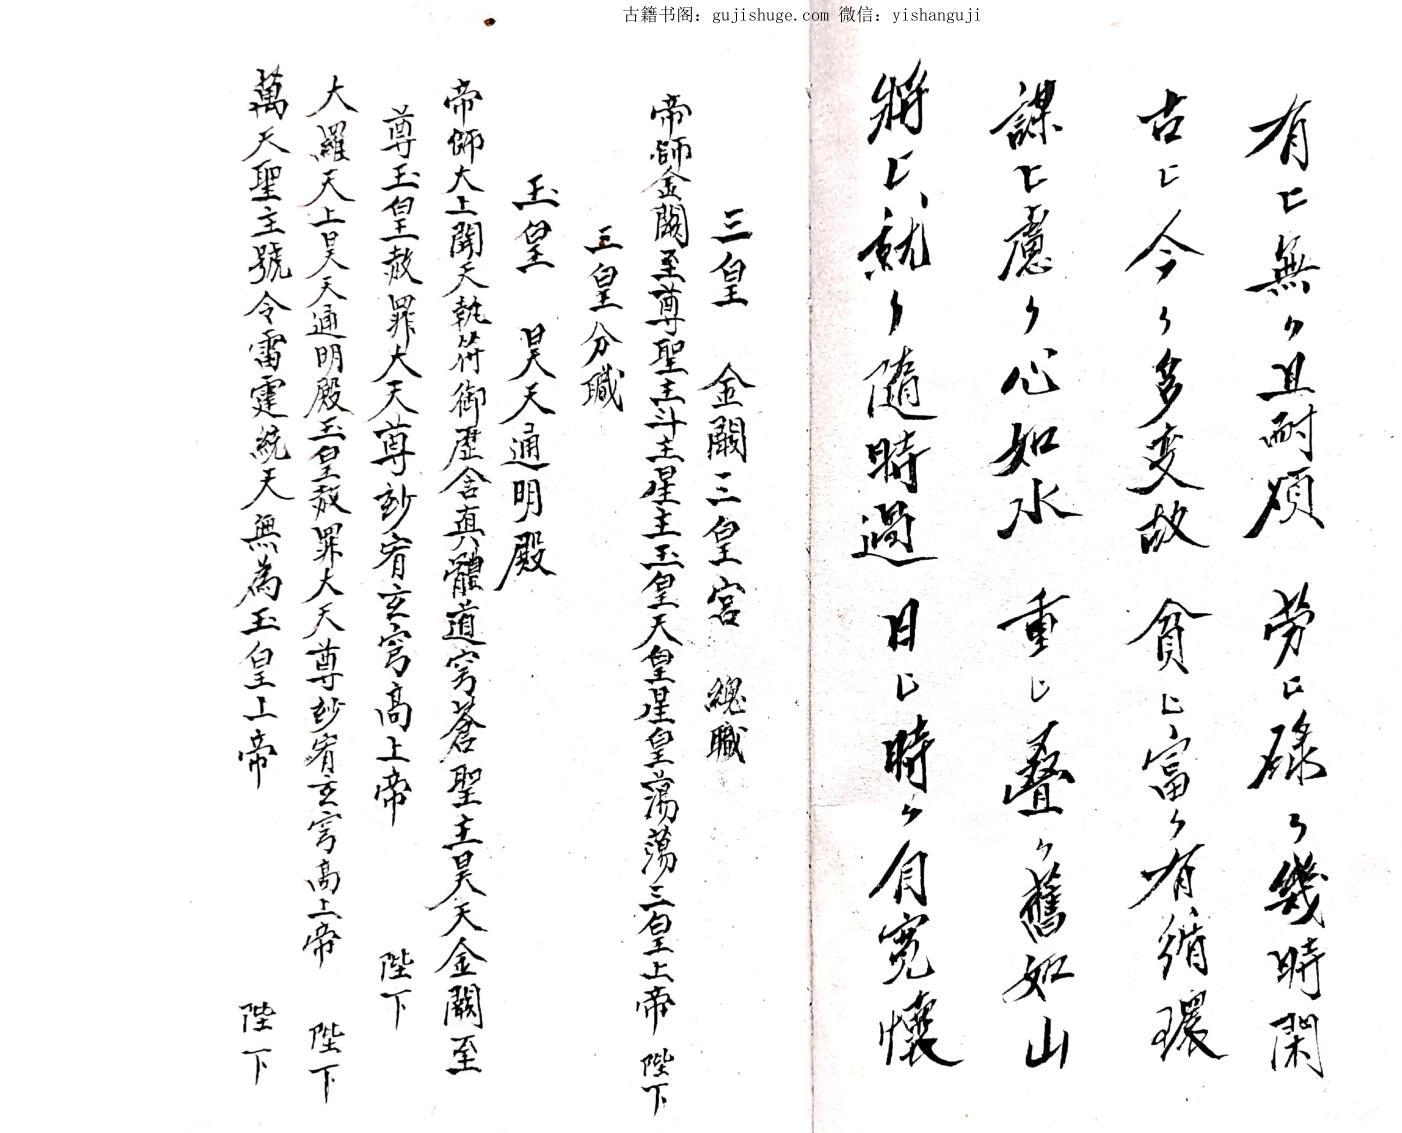 古籍书阁：gujishuge.com 微信：yishanguji
有〻無〻且耐煩 劳〻碌〻幾時閑
古〻今〻多变故 貧〻富〻有循環
謀〻慮〻心如水 重〻叠〻舊如山
將〻就〻隨時過 日〻時〻自寬懷
三皇 金闕三皇宮 總職
帝師金闕至尊聖主斗主星主玉皇天皇星皇蕩蕩三皇上帝 陛下
三皇分職
玉皇 昊天通明殿
帝師大上開天執符御歷含真體道穹蒼聖主昊天金闕至
尊玉皇赦罪大天尊玅宥玄穹高上帝 陛下
大羅天上昊天通明殿玉皇赦罪大天尊玅宥玄穹高上帝 陛下
萬天聖主號令雷霆統天無為玉皇上帝 陛下